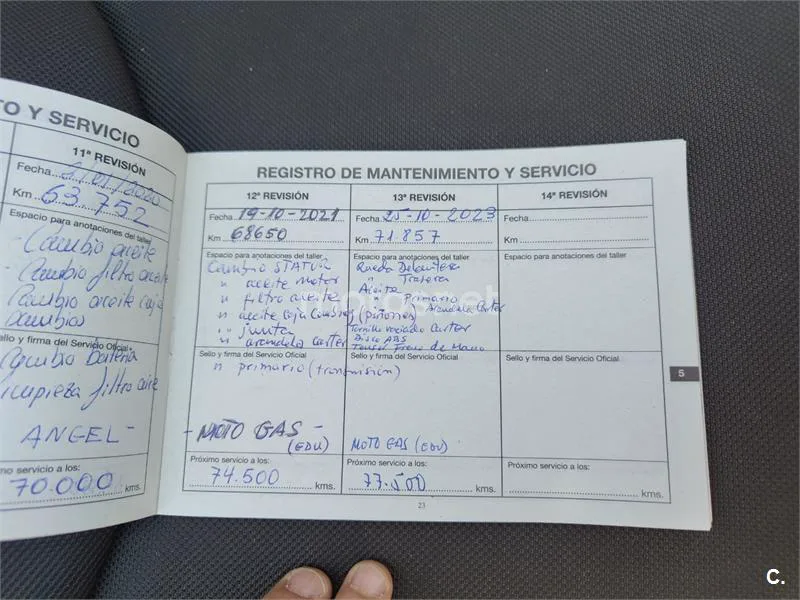 TO Y SERVICIO
11ª REVISIÓN
Fecha 2/01/2020
Km 63.752
Espacio para anotaciones del taller
- Cambio aceite
- Cambio filtro aceite
Cambio aceite caja
Cambios
sello y firma del Servicio Oficial
Cambio batería
limpieza filtro aire
ANGEL -
mo servicio a los:
70.000 kms.
REGISTRO DE MANTENIMIENTO Y SERVICIO
12ª REVISIÓN
Fecha 19-10-2021
Km 68650
Espacio para anotaciones del taller
Cambio STATOR
" aceite motor
" filtro aceite
" aceite caja Cambios (piñones)
" junta
" arandela Carter
Sello y firma del Servicio Oficial
" primario (transmisión)
- MOTO GAS -
(EDU)
Próximo servicio a los:
74.500 kms.
13ª REVISIÓN
Fecha 25-10-2023
Km 71.857
Espacio para anotaciones del taller
Rueda Delantera
" Trasera
Aceite
" Primario
Arandela Carter
Tornillo vaciado Carter
Disco ABS
Tensar Freno de Mano
Sello y firma del Servicio Oficial
MOTO GAS (EDU)
Próximo servicio a los:
77.500 kms.
14ª REVISIÓN
Fecha
Km
Espacio para anotaciones del taller
Sello y firma del Servicio Oficial
Próximo servicio a los:
kms.
5
23
motos.net
C.